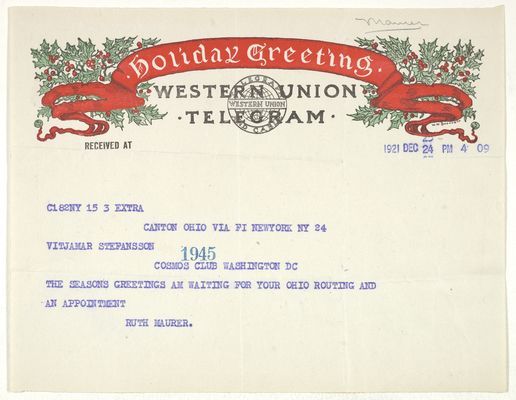 Maurer
Holiday Greeting
WESTERN UNION
WESTERN UNION
TELEGRAM
RECEIVED AT
1921 DEC 24 PM 4 09
C182NY 15 3 EXTRA
CANTON OHIO VIA FI NEWYORK NY 24
VITJAMAR STEFANSSON
1945
COSMOS CLUB WASHINGTON DC
THE SEASONS GREETINGS AM WAITING FOR YOUR OHIO ROUTING AND
AN APPOINTMENT
RUTH MAURER.